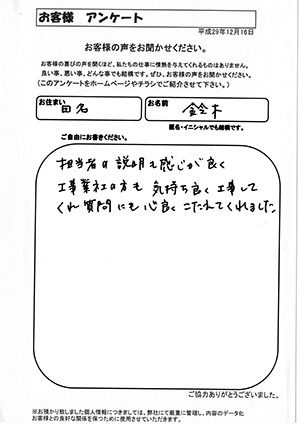 お客様 アンケート
平成29年12月16日
お客様の声をお聞かせください。
お客様の喜びの声を聞くほど、私たちの仕事に情熱を与えてくれるものはありません。
良い事、悪い事、どんな事でも結構です。ぜひ、お客様の声をお聞かせください。
(このアンケートをホームページやチラシでご紹介させて下さい。)
お住まい 田名 お名前 鈴木
匿名・イニシャルでも結構です。
ご自由にお書きください。
担当者の説明も感じが良く
工事業社の方も気持ち良く工事して
くれ質問にも心良くこたえてくれました
ご協力ありがとうございました。
※お預かり致しました個人情報につきましては、弊社にて厳重に管理し、内容のデータ化
お客様との良好な関係を保つために使用させていただきます。